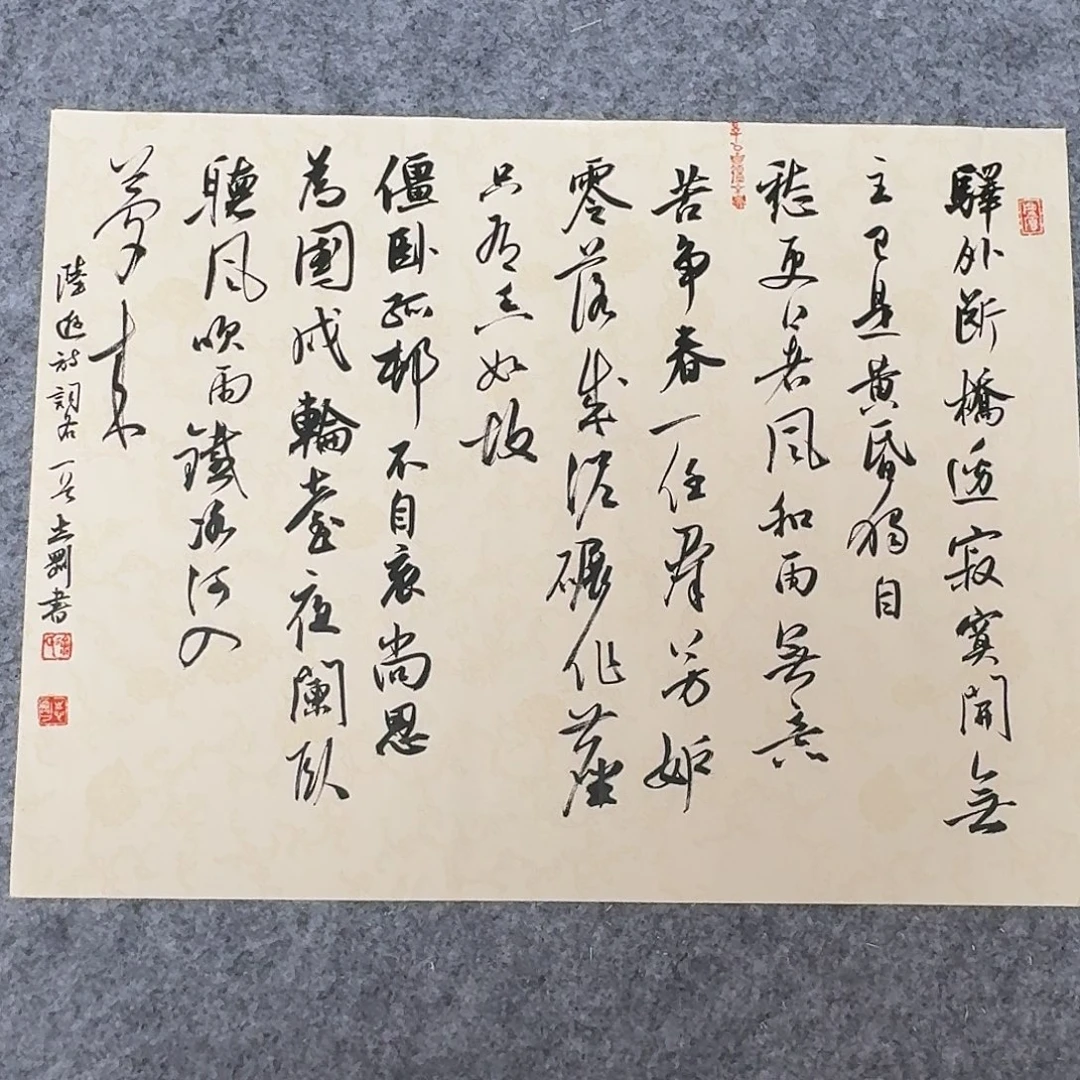 驛外斷橋邊寂寞開無
主已是黃昏獨自
愁更著風和雨無意
苦争春一任羣芳妒
零落成泥碾作塵
只有香如故
僵卧孤邨不自哀尚思
為國戍輪臺夜闌卧
聽風吹雨鐵冰河入
夢來
陸遊詩詞各一首志剛書